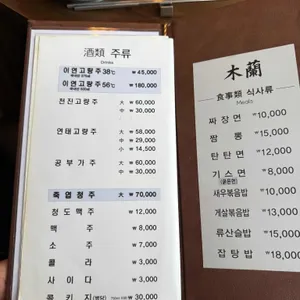 酒類 주류
Drinks
이연고량주38℃ ₩45,000
이연고량주56℃ ₩180,000
천진고량주 大 ₩60,000
中 ₩30,000
연태고량주 大 ₩58,000
中 ₩29,000
小 ₩14,500
공부가주 大 ₩60,000
中 ₩30,000
죽엽청주 大 ₩70,000
청도맥주 ₩12,000
맥주 ₩8,000
소주 ₩7,000
콜라 ₩3,000
사이다 ₩3,000
콜키지
木蘭
食事類 식사류
Meals
짜장면 ₩10,000
짬뽕 ₩15,000
탄탄면 ₩12,000
기스면 ₩8,000
새우볶음밥 ₩10,000
게살볶음밥 ₩13,000
류산슬밥 ₩15,000
잡탕밥 ₩18,000